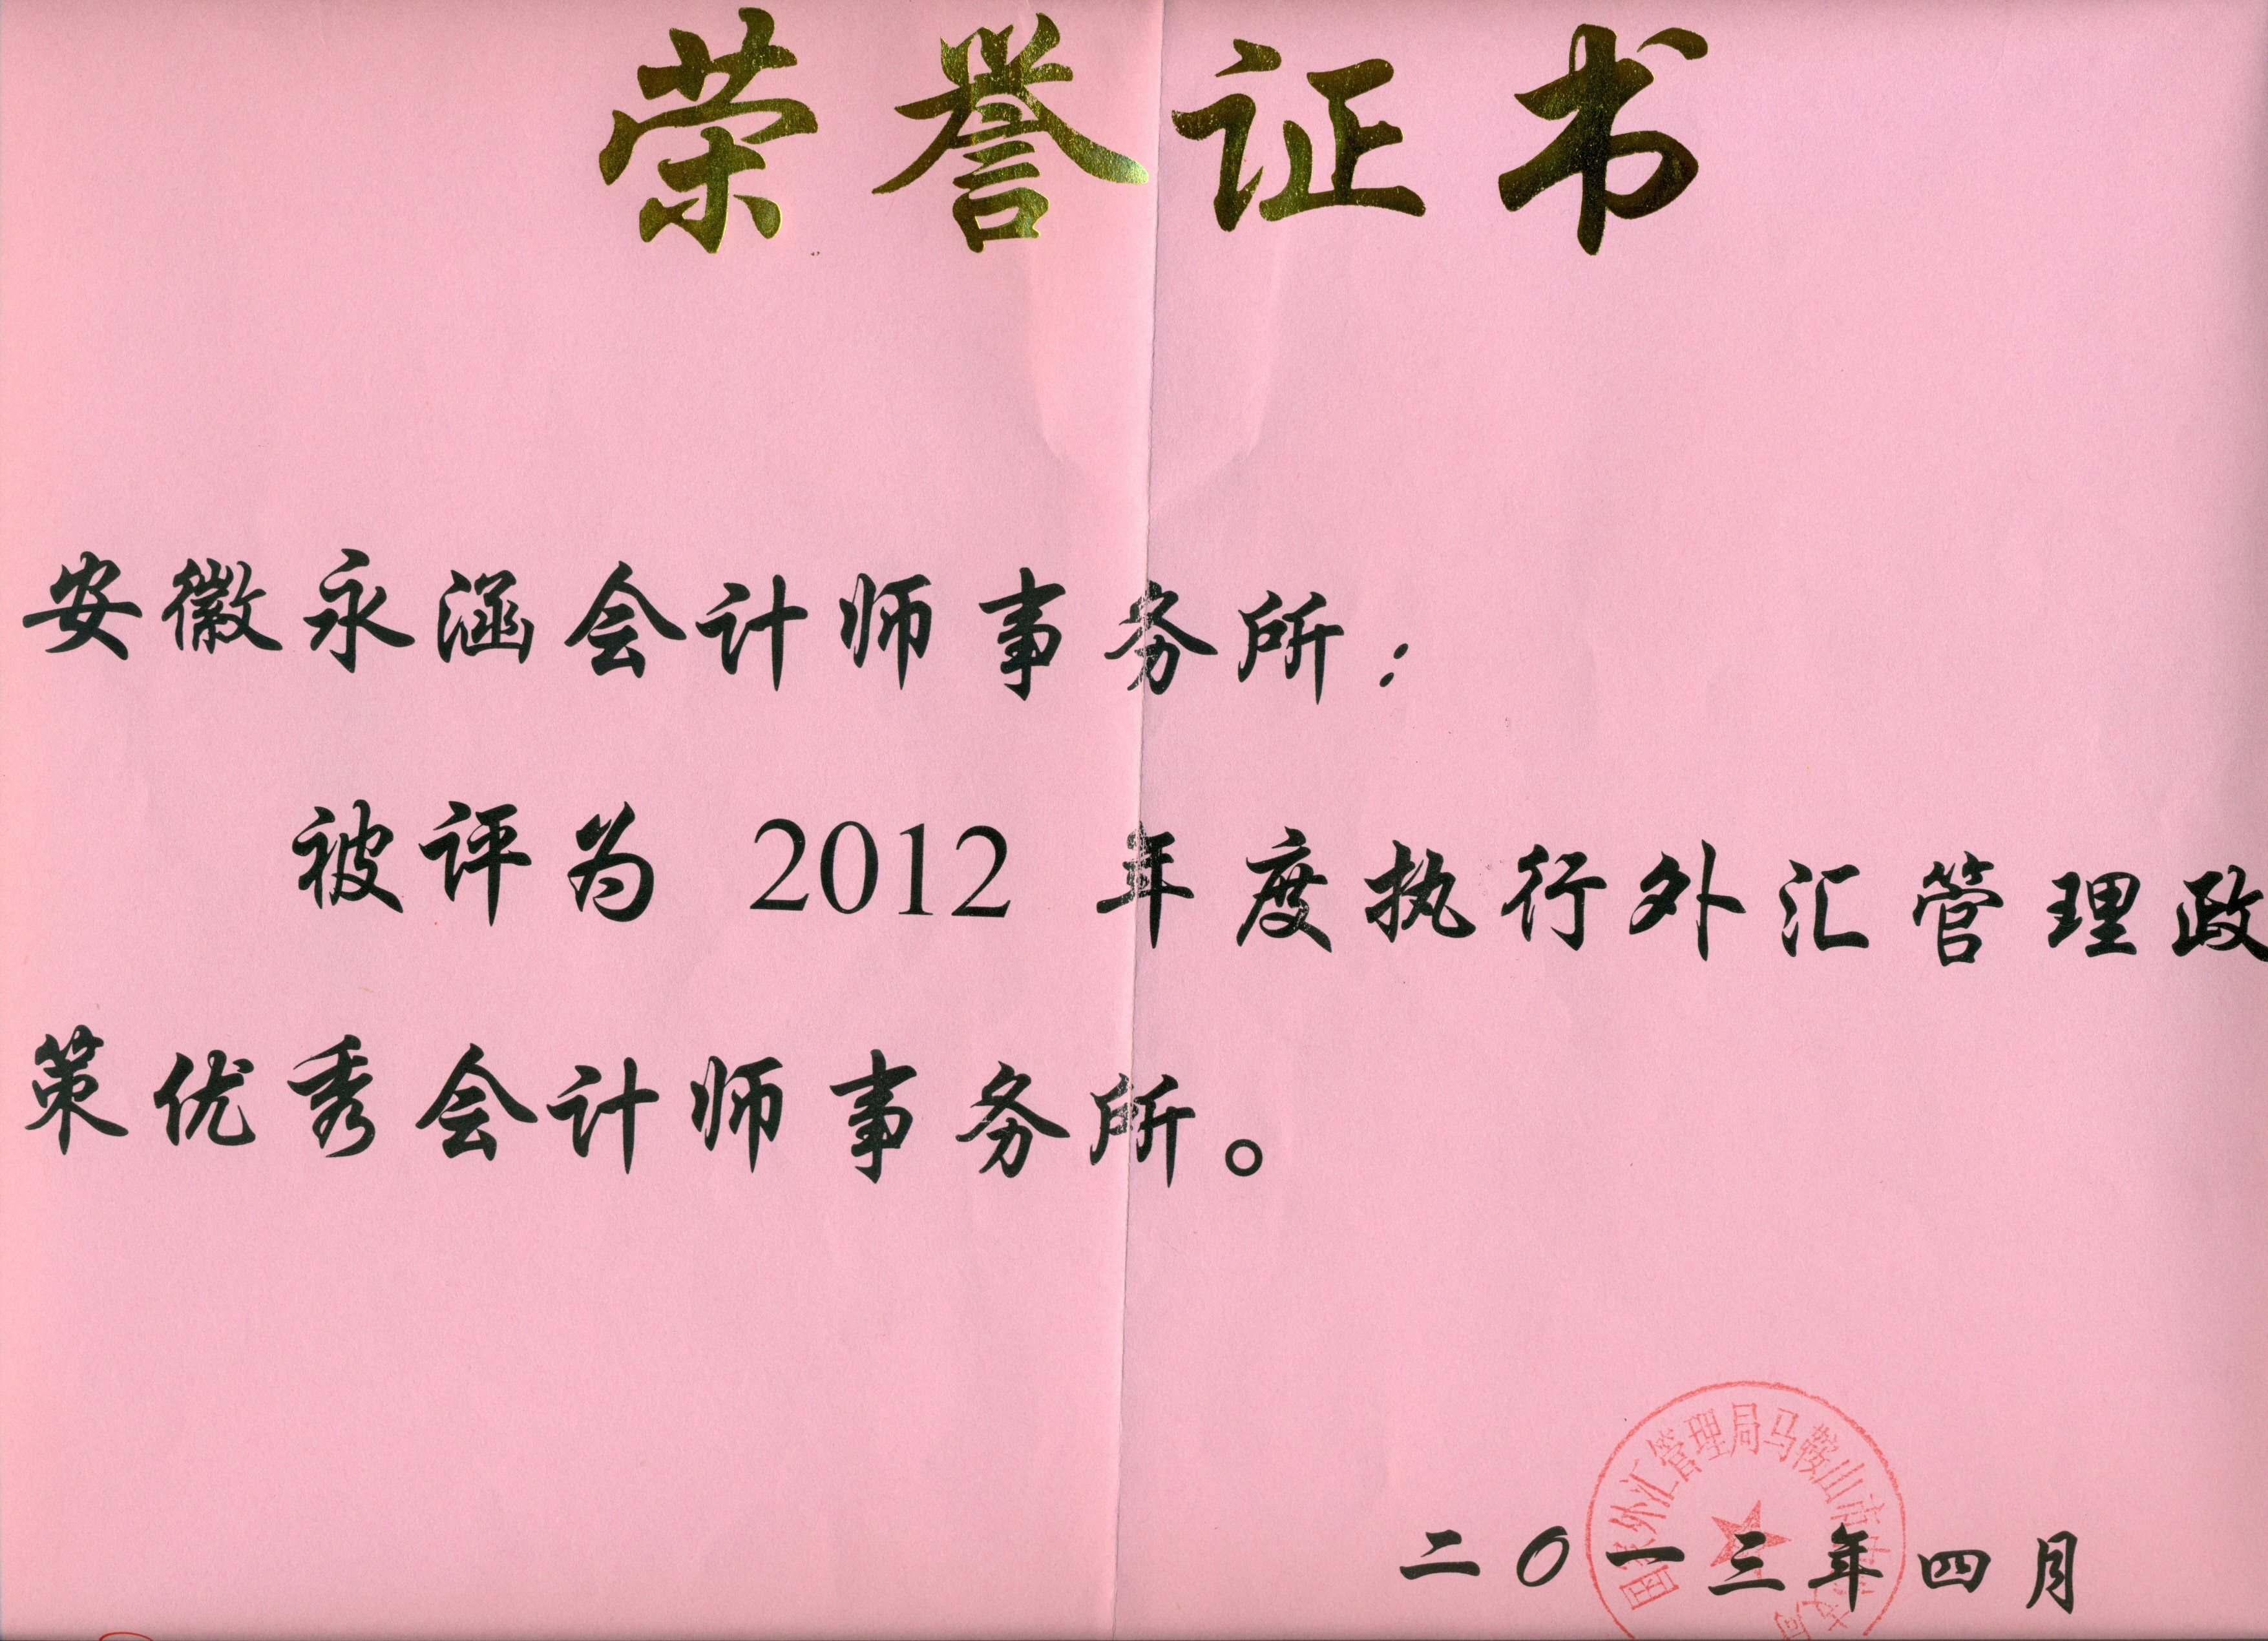 荣誉证书
安徽永涵会计师事务所:
被评为 2012 年度执行外汇管理政
策优秀会计师事务所。
国家外汇管理局马鞍山市
二〇一三年四月